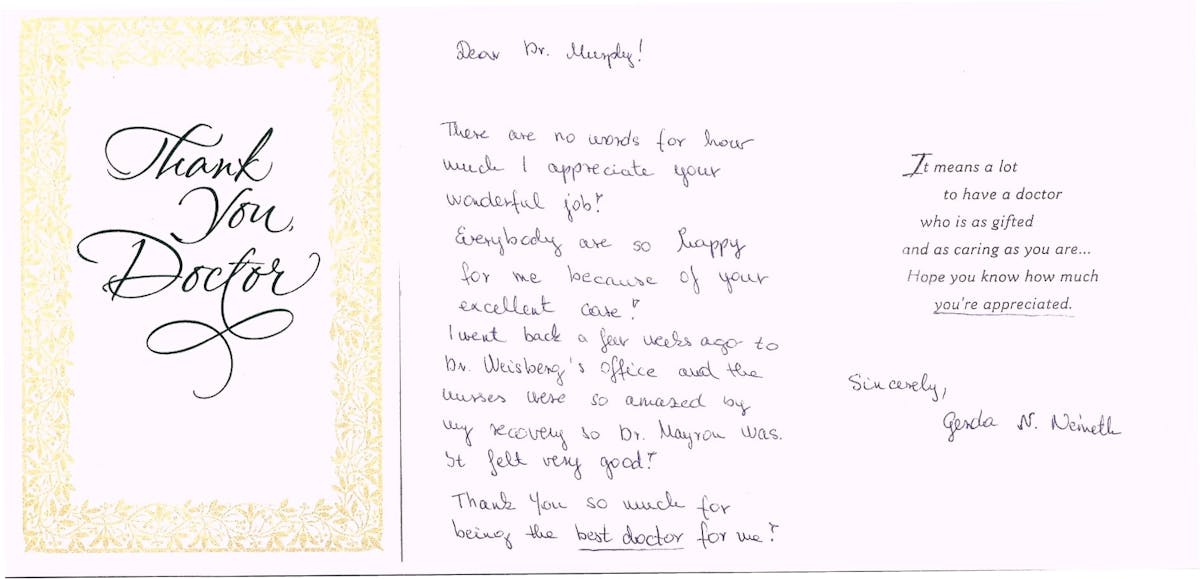 Thank
You,
Doctor
Dear Dr. Murphy!
There are no words for how
much I appreciate your
wonderful job!
Everybody are so happy
for me because of your
excellent care!
I went back a few weeks ago to
Dr. Weisberg's office and the
nurses were so amazed by
my recovery so Dr. Mayron was.
It felt very good!
Thank You so much for
being the best doctor for me!
It means a lot
to have a doctor
who is as gifted
and as caring as you are...
Hope you know how much
you're appreciated.
Sincerely,
N. Németh